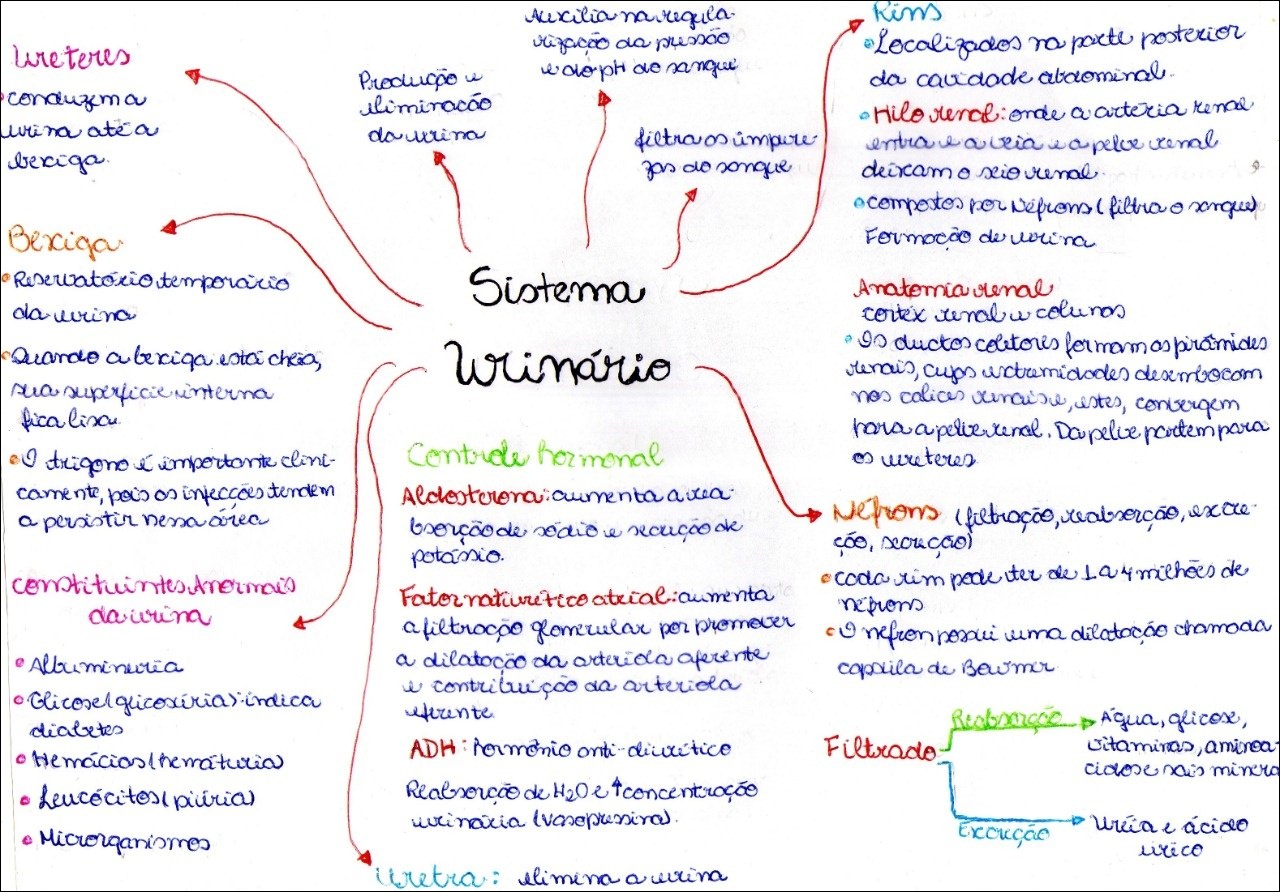 Ureteres
conduzem a
urina até a
bexiga.
Produção e
eliminação
da urina
Auxilia na regula-
rização da pressão
e do pH do sangue
filtra os impure-
zas do sangue
Rins
Localizados na parte posterior
da cavidade abdominal.
Hilo renal: onde a artéria renal
entra e a veia e a pelve renal
deixam o seio renal.
compostos por Néfrons (filtra o sangue)
Formação de urina
Sistema
Urinário
Bexiga
Reservatório temporário
da urina
Quando a bexiga está cheia,
sua superfície interna
fica lisa.
O trígono é importante clini-
camente, pois as infecções tendem
a persistir nessa área
constituintes Anormais
da urina
Albumineria
Glicose (glicosúria): indica
diabetes
Hemácias (hematúria)
Leucócitos (piúria)
Microrganismos
Controle hormonal
Aldosterona: aumenta a rea-
bsorção de sódio e secreção de
potássio.
Fator naturético atrial: aumenta
a filtração glomerular por promover
a dilatação da arteríola aferente
e contribuição da arteríola
eferente
ADH: hormônio anti-diurético
Reabsorção de H2O e ↑ concentração
urinária (vasopressina).
Uretra: elimina a urina
Anatomia renal
cortéx renal e colunas
Os ductos coletores formam as pirâmides
renais, cujas extremidades desembocam
nos calices renais e, estes, convergem
para a pelve renal. Da pelve partem para
os ureteres
Néfrons (filtração, reabsorção, excre-
ção, secreção)
cada rim pode ter de 1 a 4 milhões de
néfrons
O néfron possui uma dilatação chamada
capsula de Bowmer
Filtrado
Reabsorção
Água, glicose,
vitaminas, aminoa-
cidos e sais minera
Excreção
Uréia e ácido
urico